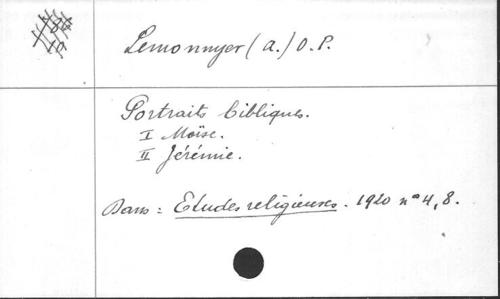 Lemonnyer (A.) O.P.
Portraits bibliques.
I Moïse.
II Jérémie.
Dans = Etudes religieuses. 1920 nos 4, 8.